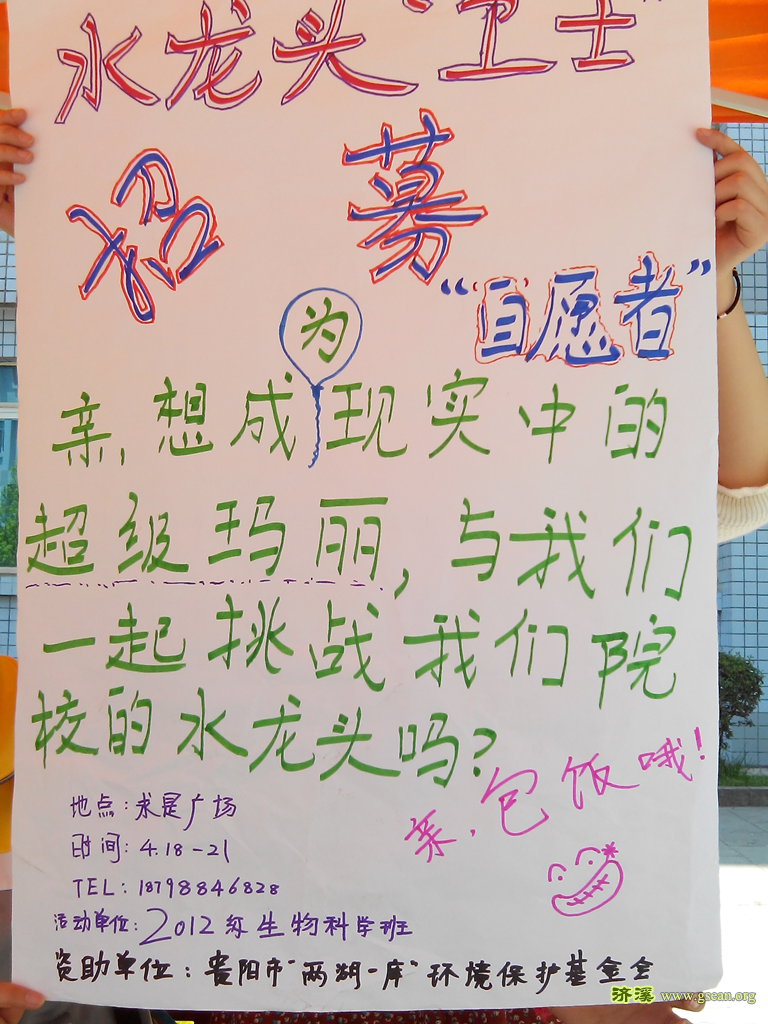 水龙头"卫士"
招募
"自愿者"
为
亲,想成现实中的
超级玛丽,与我们
一起挑战我们院
校的水龙头吗?
亲,包饭哦!
地点:求是广场
时间:4.18-21
TEL:18798846828
活动单位:2012级生物科学班
资助单位:贵阳市"两湖一库"环境保护基金会
济溪 www.gsean.org